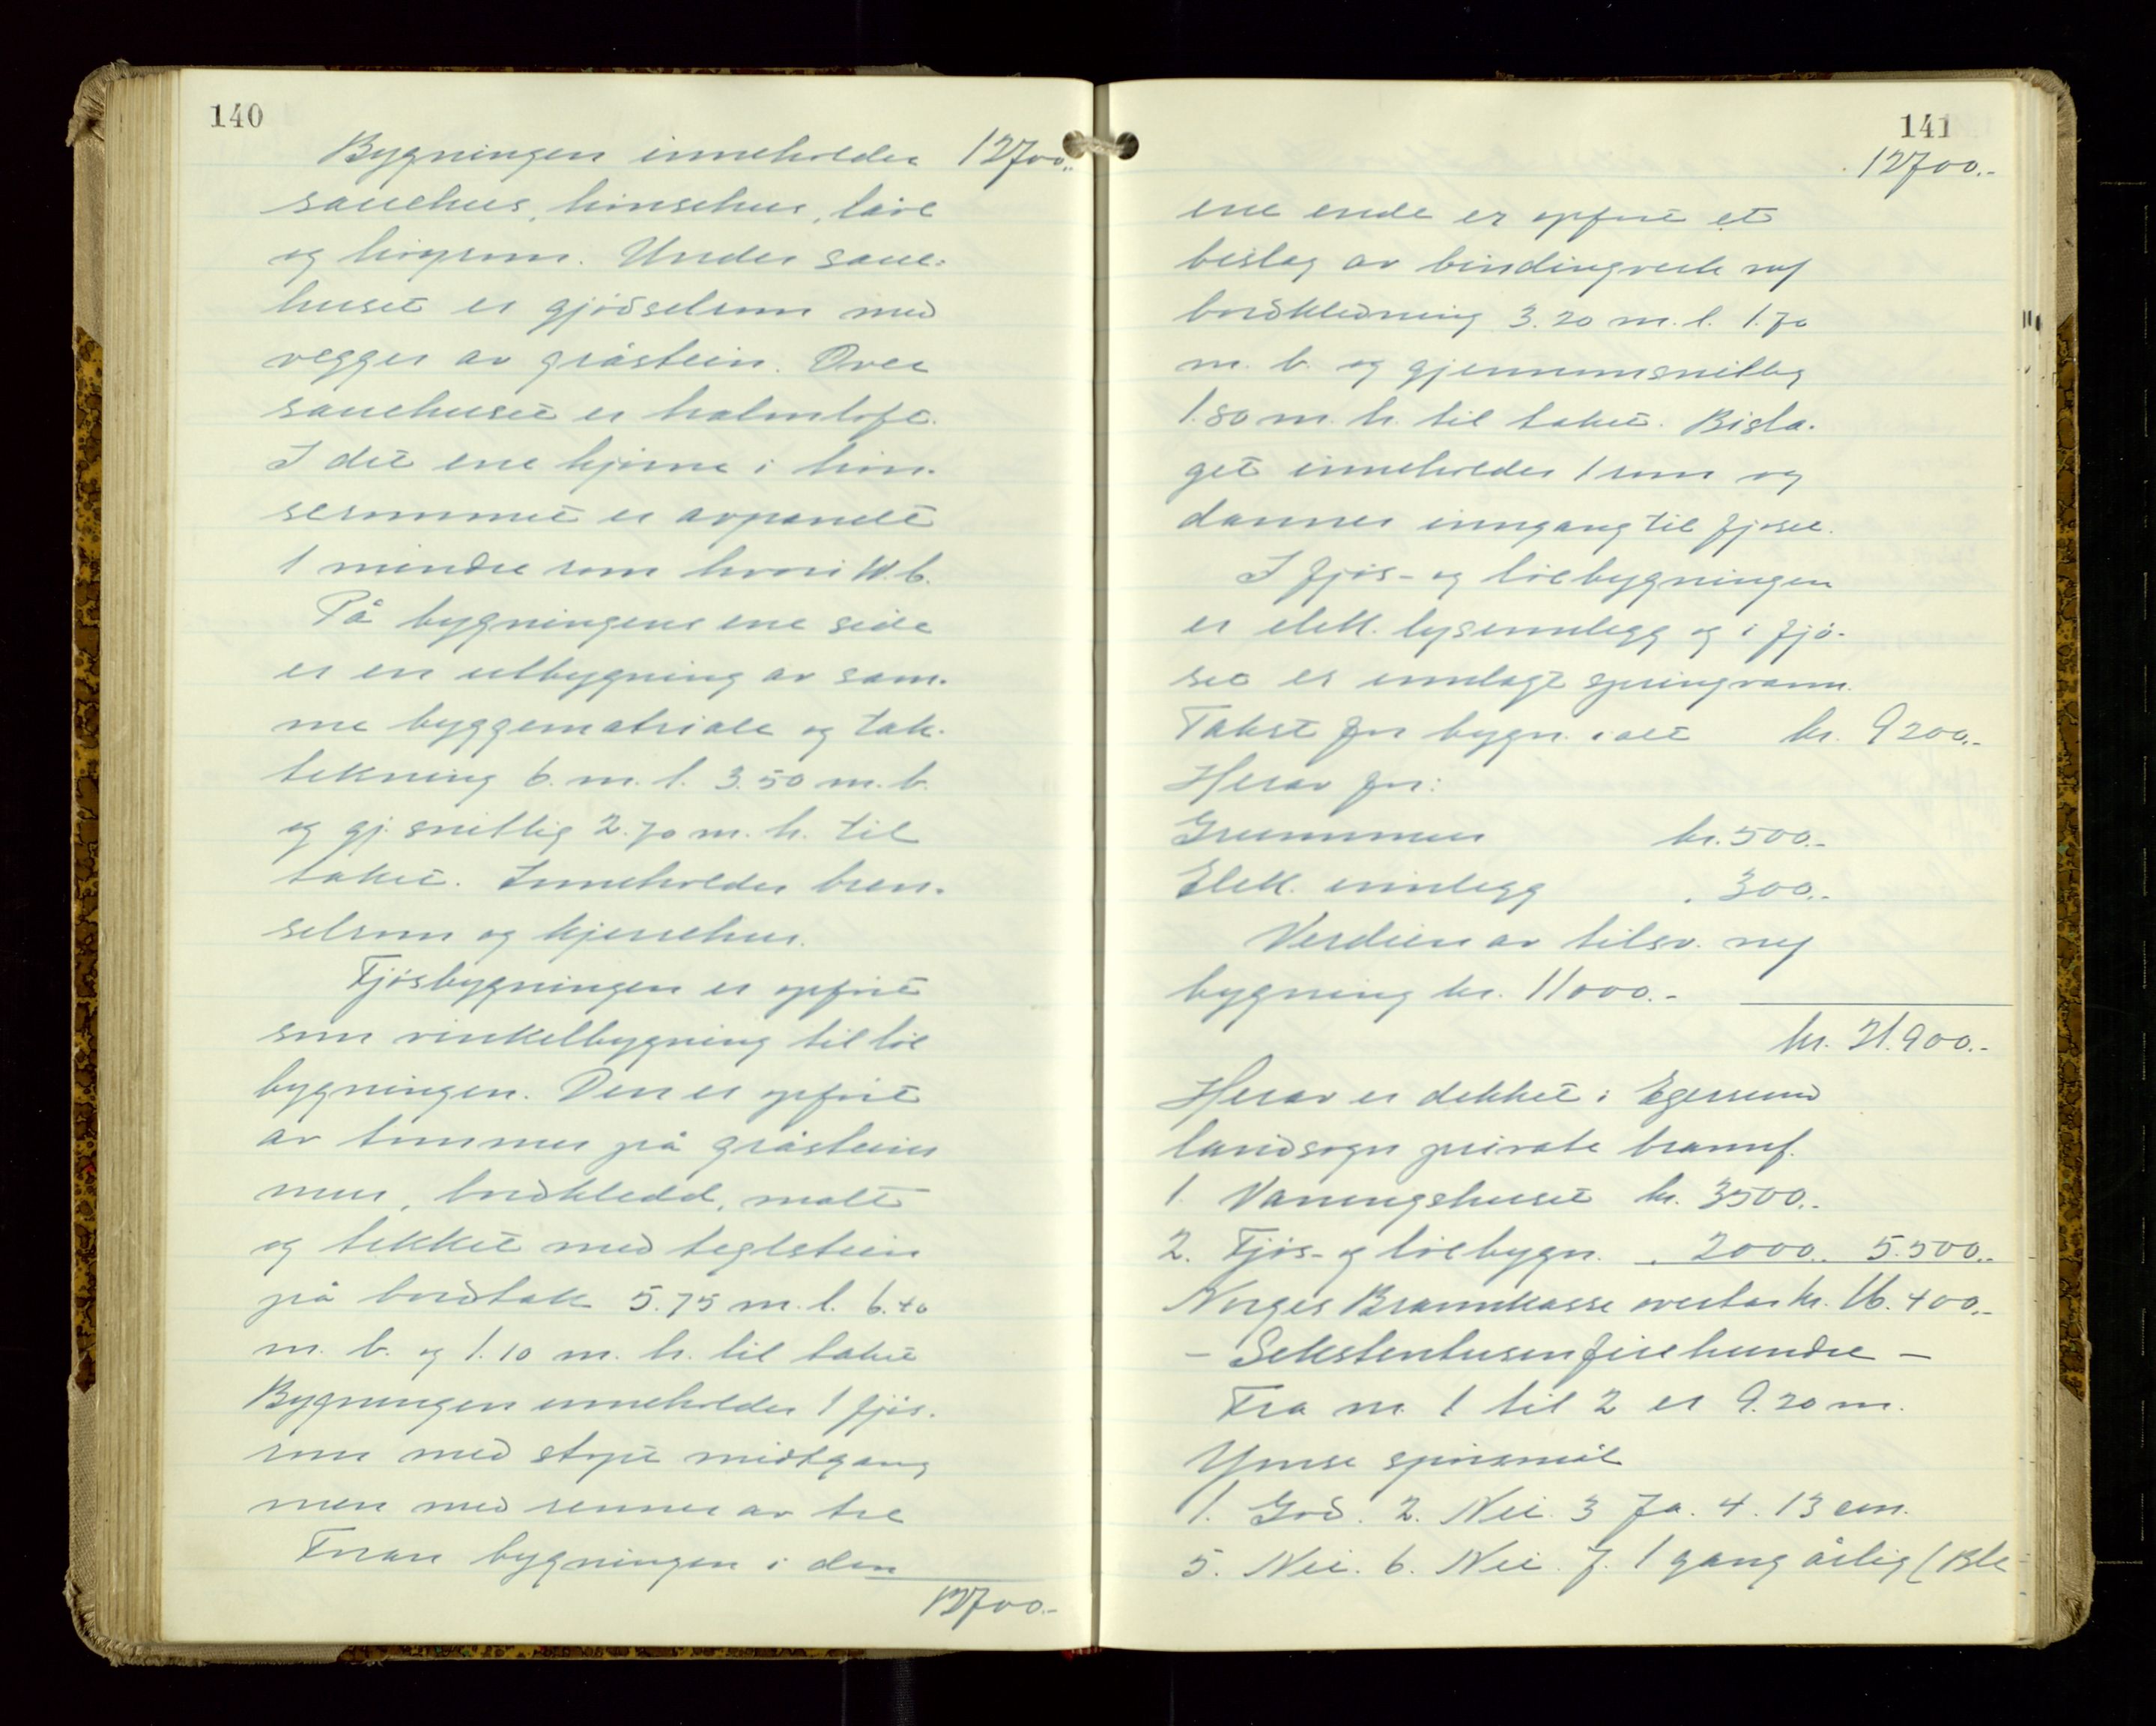 140
Bygningen inneholder 12700.-
sauehus, hönsehus, låve
og höyrom. Under saue-
huset er gjödselrom med
vegger av gråstein. Over
sauehuset er halmloft.
I det ene hjörne i hön-
serommet er avpanelt
1 mindre rom hvori W.C.
På bygningens ene side
er en utbygning av sam-
me byggematriale og tak-
tekning 6. m. l. 3.50 m. b.
og gj. snittlig 2.70 m. h. til
taket. Inneholder bren-
selrom og kjerrehus.
Fjösbygningen er opfört
som vinkelbygning til löe
bygningen. Den er opfört
av tömmer på gråsteins
mur, bordkledd, malt
og tekket med teglstein
på bordtak 5.75 m. l. 6.40
m. b. og 1.10 m. h. til taket
Bygningen inneholder 1 fjös-
rom med stöpt midtgang
men med renner av tre
Foran bygningen i den
12700.-
141
12700.-
ene ende er opfört et
bislag av bindingverk og
bordkledning 3.20 m. l. 1.70
m. b. og gjennomsnittlig
1.80 m. h. til taket. Bisla-
get inneholder 1 rom og
danner inngang til fjöset.
I fjös- og löebygningen
er elek. lysinnlegg og i fjö-
set er innlagt springvann.
Takst for bygn. i alt kr. 9200.-
Herav for:
Grunnmur kr. 500.-
Elek. innlegg " 300.-
Verdien av tilsv. ny
bygning kr. 11000.-
kr. 21.900.-
Herav er dekket i Egersund
landsogn private brannf.
1. Vaningshuset kr. 3500.-
2. Fjös- og löebygn. " 2000.- 5.500.-
Norges Brannkasse overtar kr. 16.400.-
- Sekstentusenfirehundre -
Fra nr. 1 til 2 er 9.20 m.
Ymse spörsmål
1. God. 2. Nei. 3 Ja. 4. 13 cm.
5. Nei. 6. Nei. 7. 1 gang årlig (Ble